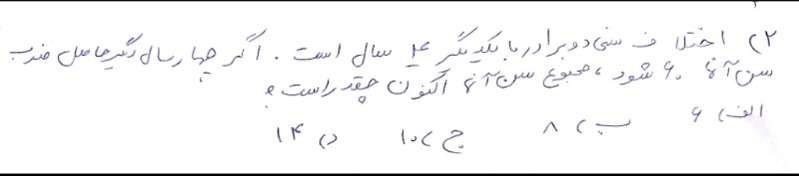 ۲) اختلاف سنی دو برادر با یکدیگر ۴ سال است. اگر چهار سال دیگر حاصل ضرب
سن آنها ۶۰ شود، مجموع سن آنها اکنون چقدر است؟
الف) ۶ ب) ۸ ج) ۱۰ د) ۱۴